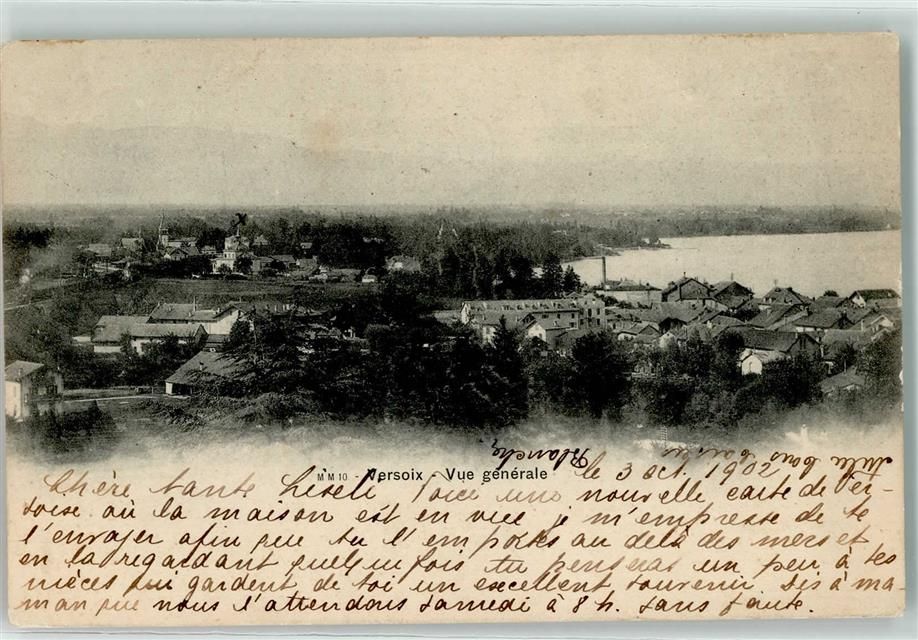 MM 10 - Versoix - Vue générale
le 3 oct. 1902
Chère tante Liseli Voice une nouvelle carte de Ver-
soise où la maison est en vue je m'empresse de te
l'envoyer afin que tu l'emportes au delà des mers et
en la regardant quelquefois tu penseras un peu à tes
nièces qui gardent de toi un excellent souvenir Dis à ma
man que nous l'attendons samedi à 8 h. sans faute.
Mille bons baisers
Blanche